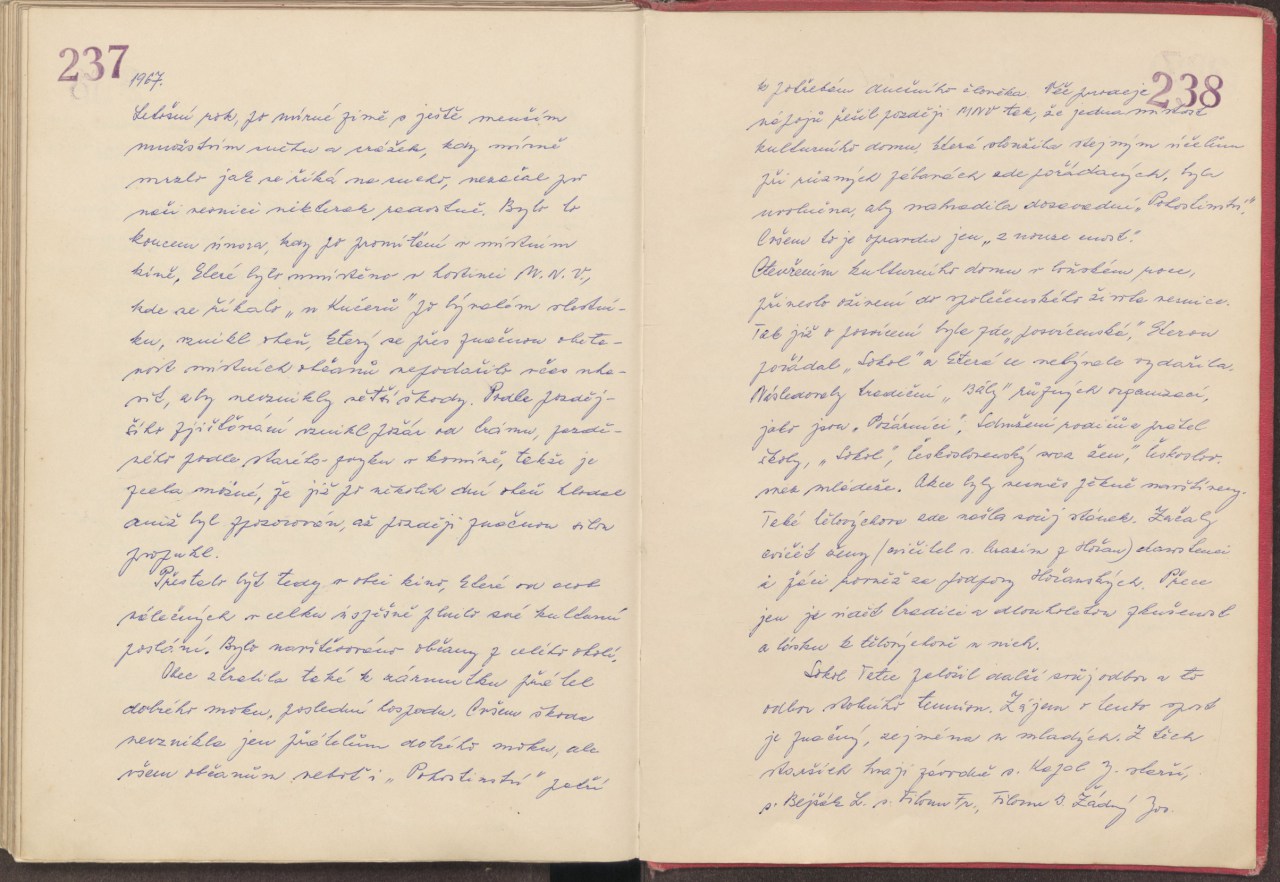 237
1967.
Letošní rok, po mírné zimě s ještě menším
množstvím sněhu a srážek, kdy mírně
mrzlo jak se říká na sucho, nezačal pro
naši vesnici nikterak radostně. Bylo to
koncem února, kdy po promítání v místním
kině, které bylo umístěno v hostinci M.N.V.,
kde se říkalo „u Kučerů" po bývalém vlastní-
ku, vznikl oheň, který se přes značnou oběta-
vost místních občanů nepodařilo včas uha-
sit, aby nevznikly větší škody. Podle pozděj-
šího zjišťování vznikl požár od trámu, zazdě-
ného podle starého zvyku v komíně, takže je
zcela možné, že již po několik dní oheň hlodal
aniž byl zpozorován, až později značnou silou
propukl.
Přestalo být tedy v obci kino, které od dob
válečných v celku úspěšně plnilo své kulturní
poslání. Bylo navštěvováno občany z celého okolí.
Obec ztratila také k zármutku přátel
dobrého moku, poslední hospodu. Ovšem škoda
nevznikla jen přátelům dobrého moku, ale
všem občanům neboť i „Pohostinství" patří
238
k potřebám dnešního člověka. Věc prodeje
nápojů řešil později MNV tak, že jedna místnost
kulturního domu, která sloužila stejným účelům
při různých zábavách zde pořádaných, byla
uvolněna, aby nahradila dosavadní „Pohostinství".
Ovšem to je opravdu jen „z nouze cnost".
Otevřením kulturního domu v loňském roce,
přineslo oživení do společenského života vesnice.
Tak již o posvícení byla zde „posvícenská", kterou
pořádal „Sokol" a která se nebývale vydařila.
Následovaly tradiční „Bály" různých organizací,
jako jsou „Požárníci", Sdružení rodičů a přátel
školy, „Sokol", Československý svaz žen", Českoslov.
svaz mládeže. Akce byly vesměs pěkně navštíveny.
Také tělovýchova zde našla svůj stánek. Začaly
cvičit ženy (cvičitel s. z Hořan) dorostenci
i žáci rovněž za podpory Hořanských. Přece
jen je vidět tradici a dlouholetou zkušenost
a lásku k tělovýchově u nich.
Sokol Tetín založil další svůj odbor a to
odbor stolního tennisu. Zájem o tento sport
je značný, zejména u mladých. Z těch
starších hrají závodně s. Kazal J. starší,
s. Bejšák L. s. Filoun Fr., Filoun D. Žádný Jos.